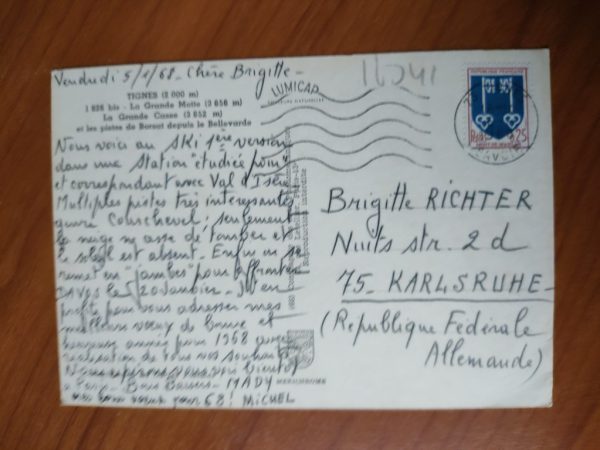 Vendredi 5/1/68 - Chère Brigitte -
TIGNES (2 000 m)
1 826 bis - La Grande Motte (3 656 m)
La Grande Casse (3 852 m)
et les pistes de Borsat depuis le Bellevarde
Nous voici au ski 1ère version
dans une station "étudiée pour"
et correspondant avec Val d'Isère
Multiples pistes très intéressantes
genre Courchevel; seulement
la neige ne cesse de tomber et
le soleil est absent. Enfin on se
remet en "jambes" pour affronter
DAVOS le 20 Janvier - J'en
profite pour vous adresser mes
meilleurs vœux de bonne et
heureuse année pour 1968 avec
réalisation de tous vos souhaits
Nous espérons vous voir bientôt
à Paris - Bons Baisers - MADY
bons vœux pour 68! MICHEL
LUMICAP
Reproduction interdite
MEXICHROME
REPUBLIQUE FRANÇAISE
0,25
Brigitte RICHTER
Nuits str. 2 d
75 - KARLSRUHE -
(République Fédérale
Allemande)